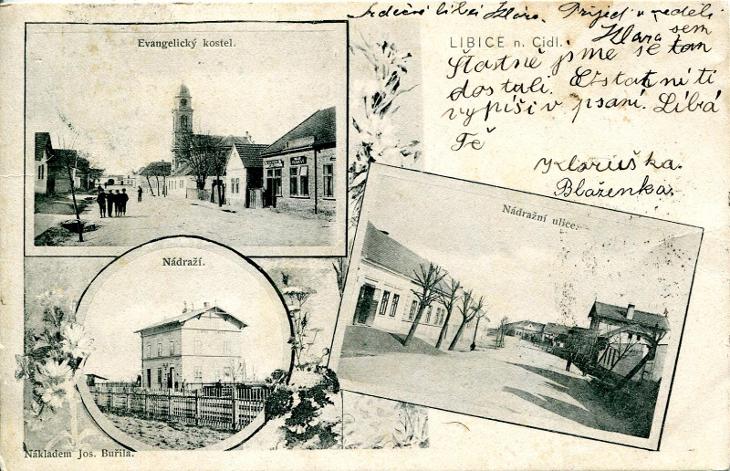 Srdečně líbá Klára. Přijeď v neděli
Klára sem
Evangelický kostel.
LIBICE n. Cidl.
Šťastně jsme se tam
dostali. Ostatní ti
vypíši v psaní. Líbá
Tě
Klaruška.
Blaženka.
Nádražní ulice.
Nádraží.
Nákladem Jos. Buřila.